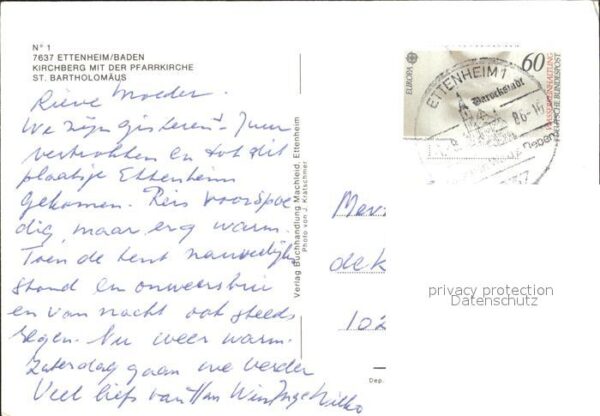 N° 1
7637 ETTENHEIM/BADEN
KIRCHBERG MIT DER PFARRKIRCHE
ST. BARTHOLOMÄUS
Lieve Moeder.
We zijn gisteren
vertrokken en tot dit
plaatsje Ettenheim
gekomen. Reis voorspoe
dig, maar erg warm.
Toen de tent nauwelijks
stond en onweersbui
en van nacht ook steeds
regen. Nu weer warm.
Zaterdag gaan we verder
Veel liefs van Han Wim Inge
Verlag Buchhandlung Machleid, Ettenheim
Photo von J. Kratschner
EUROPA
60
DEUTSCHE BUNDESPOST
ETTENHEIM 1
Barockstadt
86-16
Mev.
dek
102
Dep.
privacy protection
Datenschutz